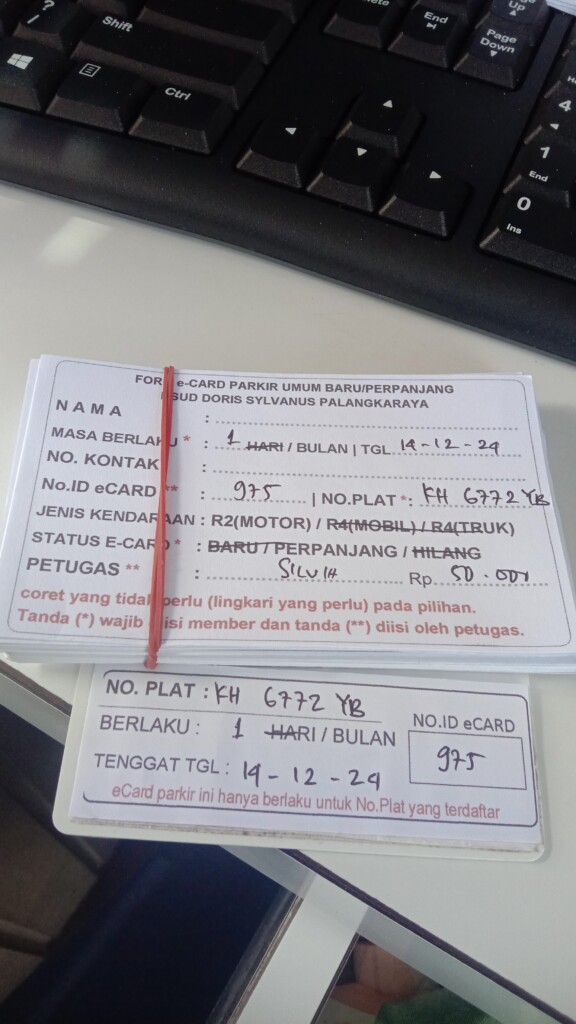 ?
/
Shift
Ctrl
End
Page
Up
Page
Down
4
1
End
0
Ins
FOR e-CARD PARKIR UMUM BARU/PERPANJANG
SUD DORIS SYLVANUS PALANGKARAYA
NAMA :
MASA BERLAKU * : 1 HARI / BULAN | TGL 14-12-24
NO. KONTAK :
No.ID eCARD ** : 975 | NO.PLAT *: KH 6772 YB
JENIS KENDARAAN : R2(MOTOR) / R4(MOBIL) / R4(TRUK)
STATUS E-CARD * : BARU / PERPANJANG / HILANG
PETUGAS ** : SILVIA Rp 50.000
coret yang tidak perlu (lingkari yang perlu) pada pilihan.
Tanda (*) wajib isi member dan tanda (**) diisi oleh petugas.
NO. PLAT : KH 6772 YB
BERLAKU : 1 HARI / BULAN
NO.ID eCARD
975
TENGGAT TGL : 14-12-24
eCard parkir ini hanya berlaku untuk No.Plat yang terdaftar